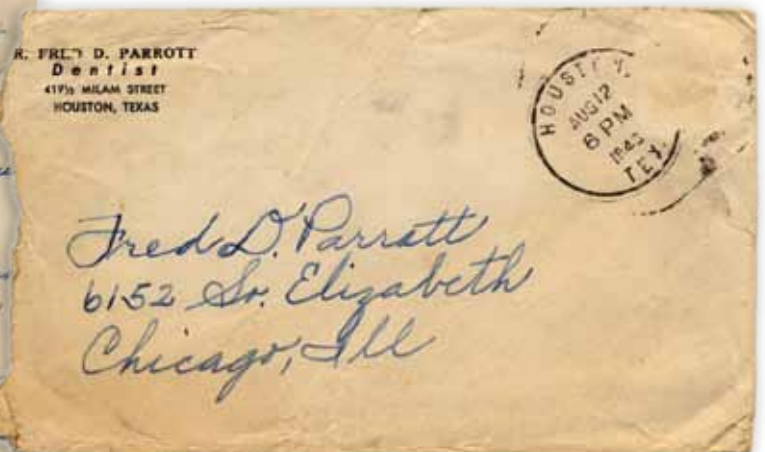 R. FRED D. PARROTT
Dentist
419½ MILAM STREET
HOUSTON, TEXAS
HOUSTON,
AUG 12
6 PM
TEX.
Fred D. Parratt
6152 So. Elizabeth
Chicago, Ill